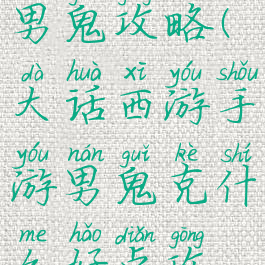 男鬼攻略(
dà huà xī yóu shǒu
大话西游手
yóu nán guǐ kè shí
游男鬼克什
me hǎo diǎn gōng